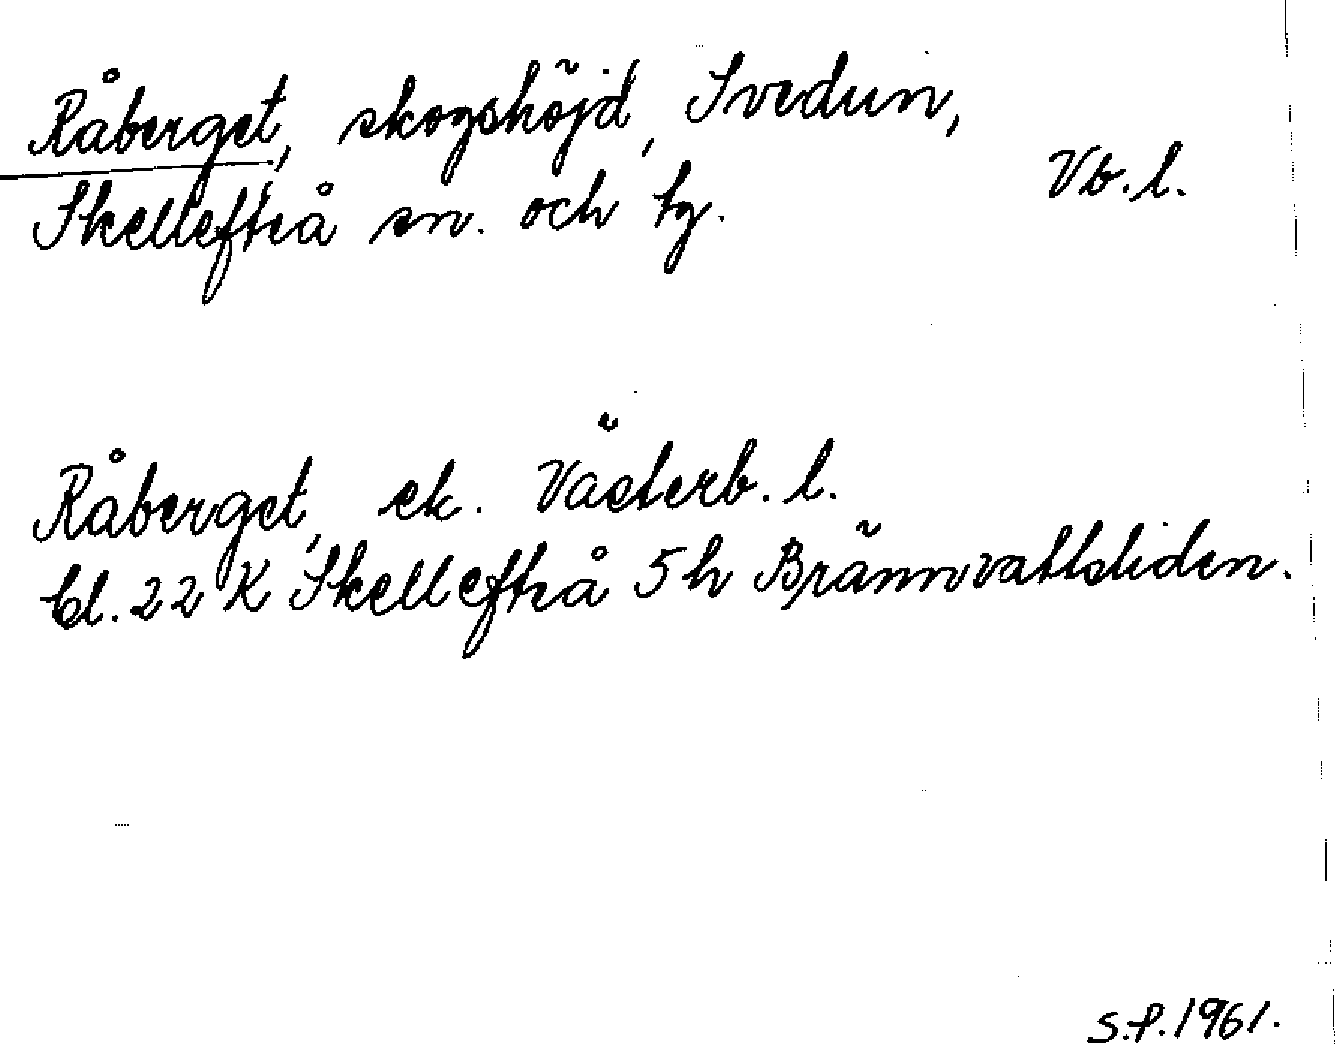 Råberget, skogshöjd, Svedun,
Skellefteå sn. och tg. Vb.l.
Råberget, ek. Västerb. l.
bl. 22 K Skellefteå 5h Brännvattsliden.
S.P. 1961.